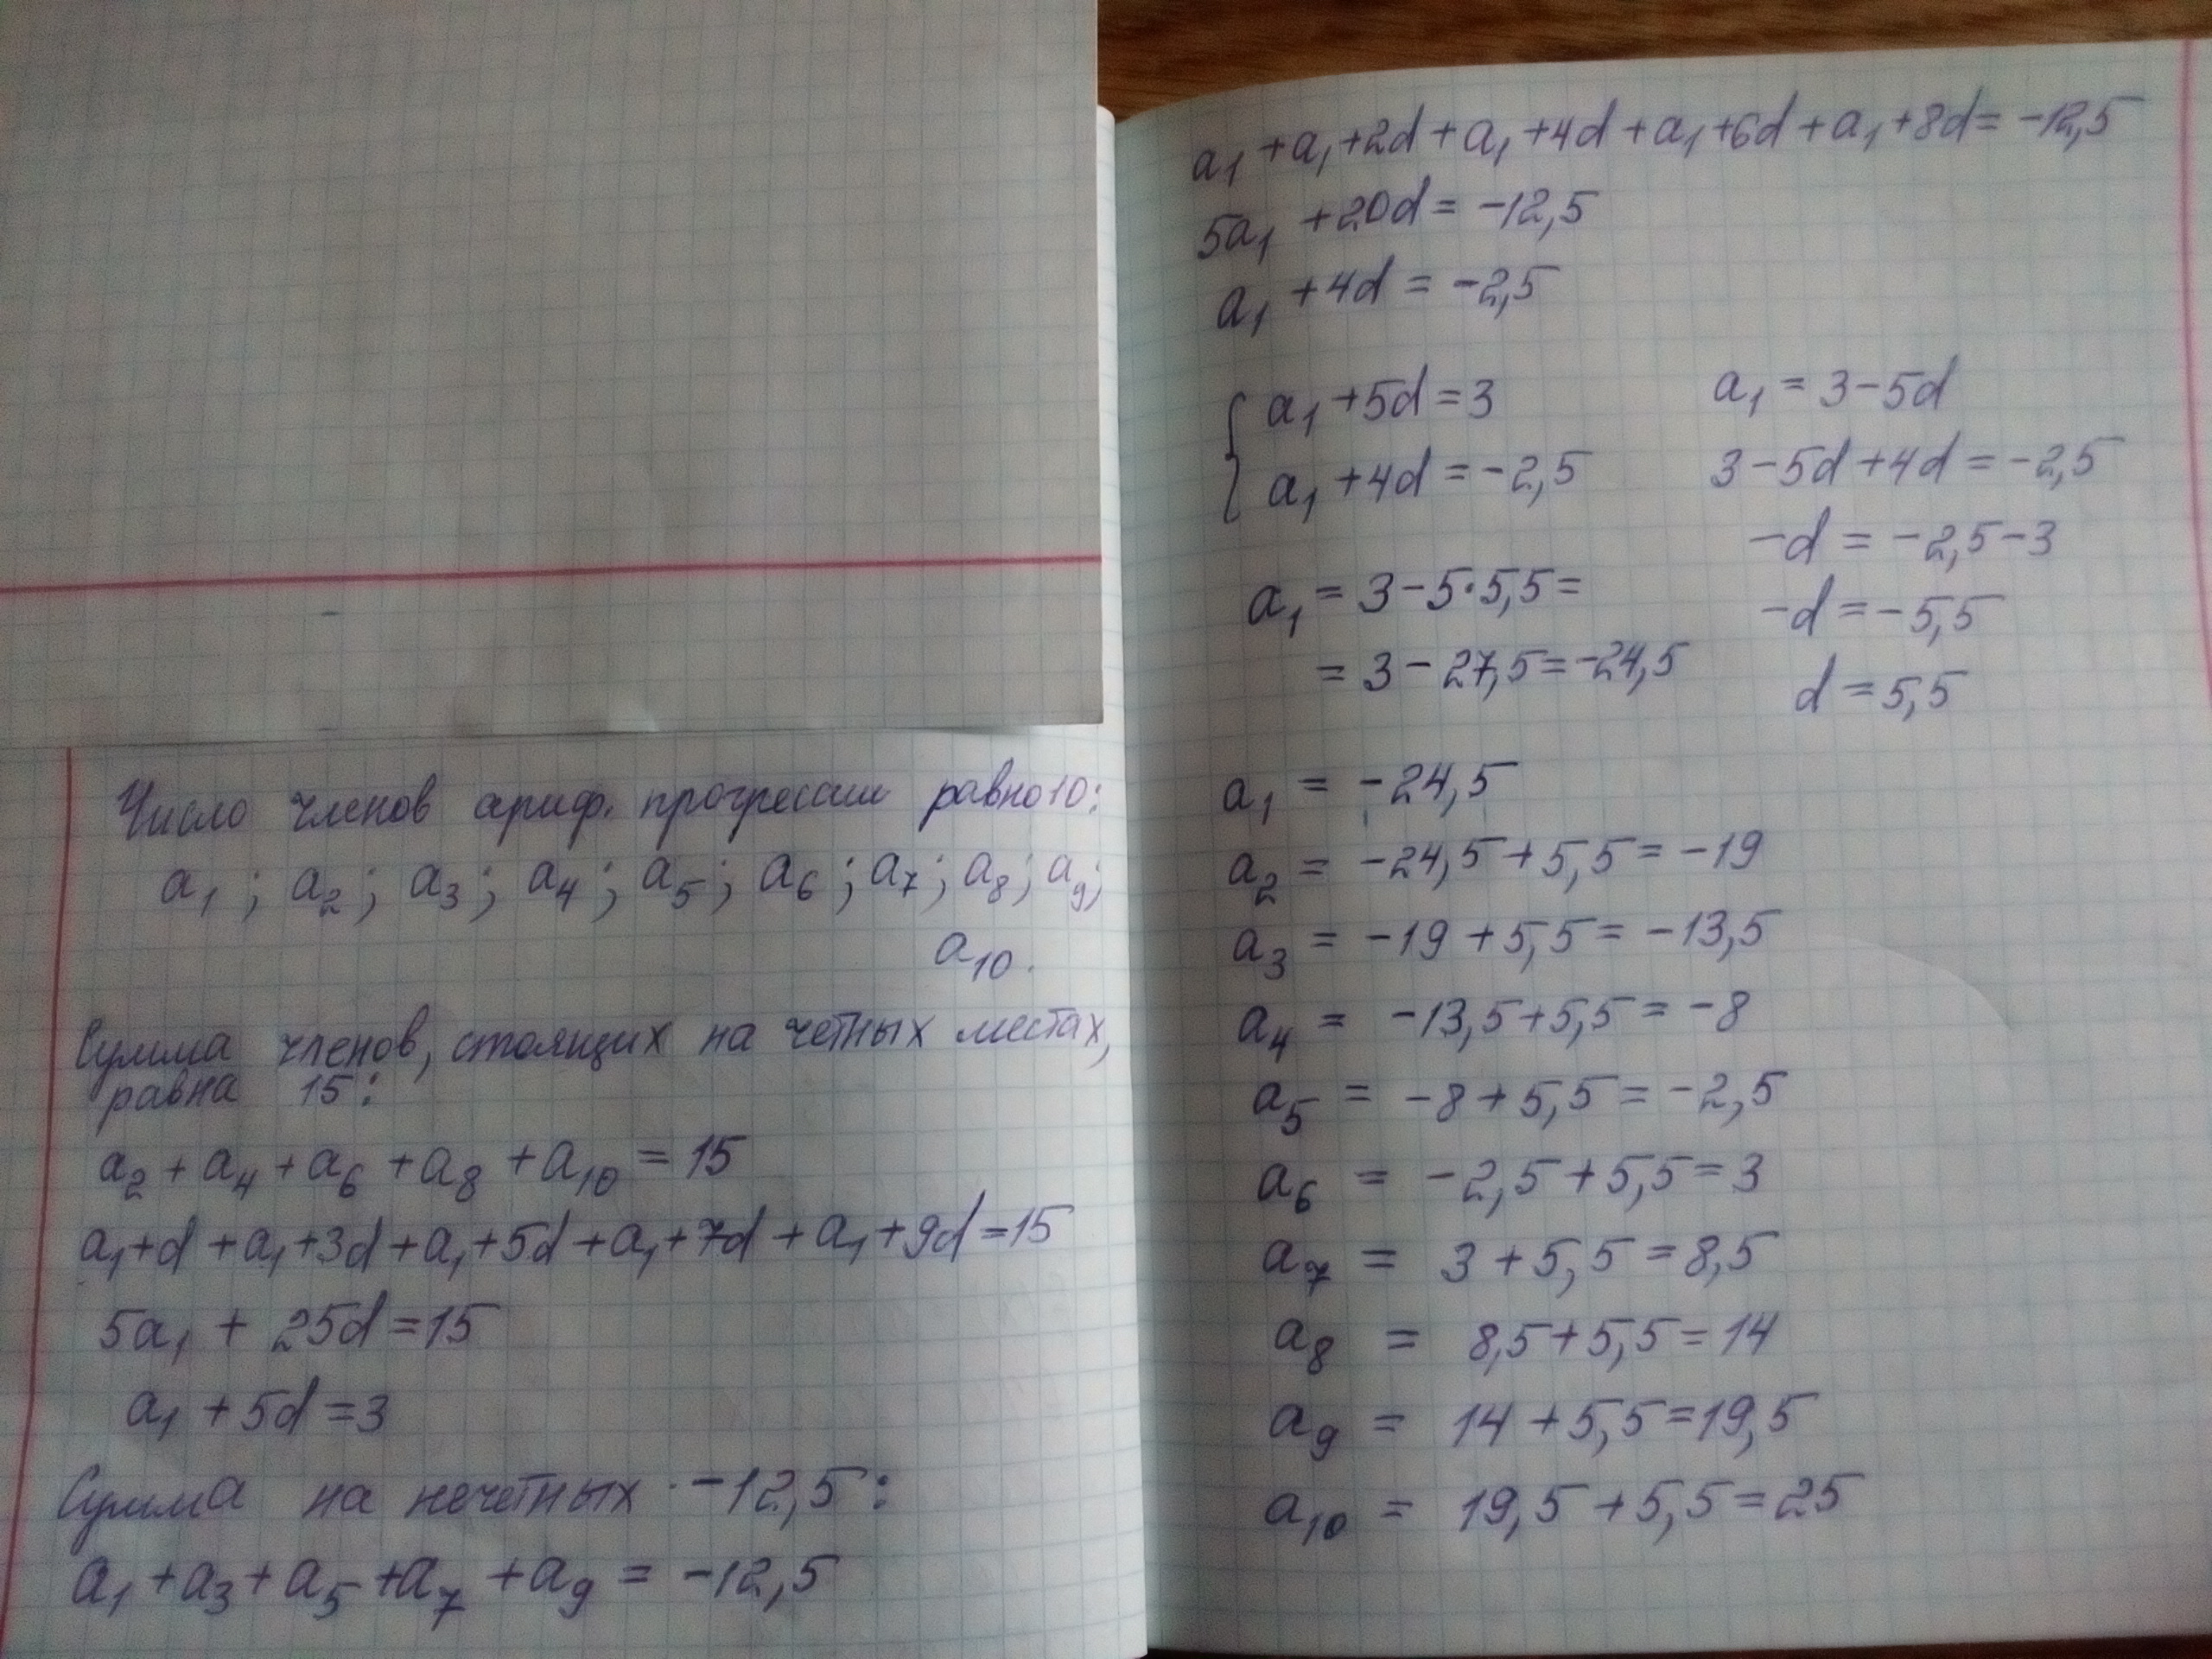 Число членов ариф. прогрессии равно 10:
a₁; a₂; a₃; a₄; a₅; a₆; a₇; a₈; a₉;
a₁₀.
Сумма членов, стоящих на четных местах,
равна 15:
a₂ + a₄ + a₆ + a₈ + a₁₀ = 15
a₁+d + a₁+3d + a₁+5d + a₁+7d + a₁+9d = 15
5a₁ + 25d = 15
a₁ + 5d = 3
Сумма на нечетных -12,5:
a₁ + a₃ + a₅ + a₇ + a₉ = -12,5
a₁ + a₁ + 2d + a₁ + 4d + a₁ + 6d + a₁ + 8d = -12,5
5a₁ + 20d = -12,5
a₁ + 4d = -2,5
{ a₁ + 5d = 3
a₁ + 4d = -2,5
a₁ = 3 - 5d
3 - 5d + 4d = -2,5
-d = -2,5 - 3
-d = -5,5
d = 5,5
a₁ = 3 - 5·5,5 =
= 3 - 27,5 = -24,5
a₁ = -24,5
a₂ = -24,5 + 5,5 = -19
a₃ = -19 + 5,5 = -13,5
a₄ = -13,5 + 5,5 = -8
a₅ = -8 + 5,5 = -2,5
a₆ = -2,5 + 5,5 = 3
a₇ = 3 + 5,5 = 8,5
a₈ = 8,5 + 5,5 = 14
a₉ = 14 + 5,5 = 19,5
a₁₀ = 19,5 + 5,5 = 25